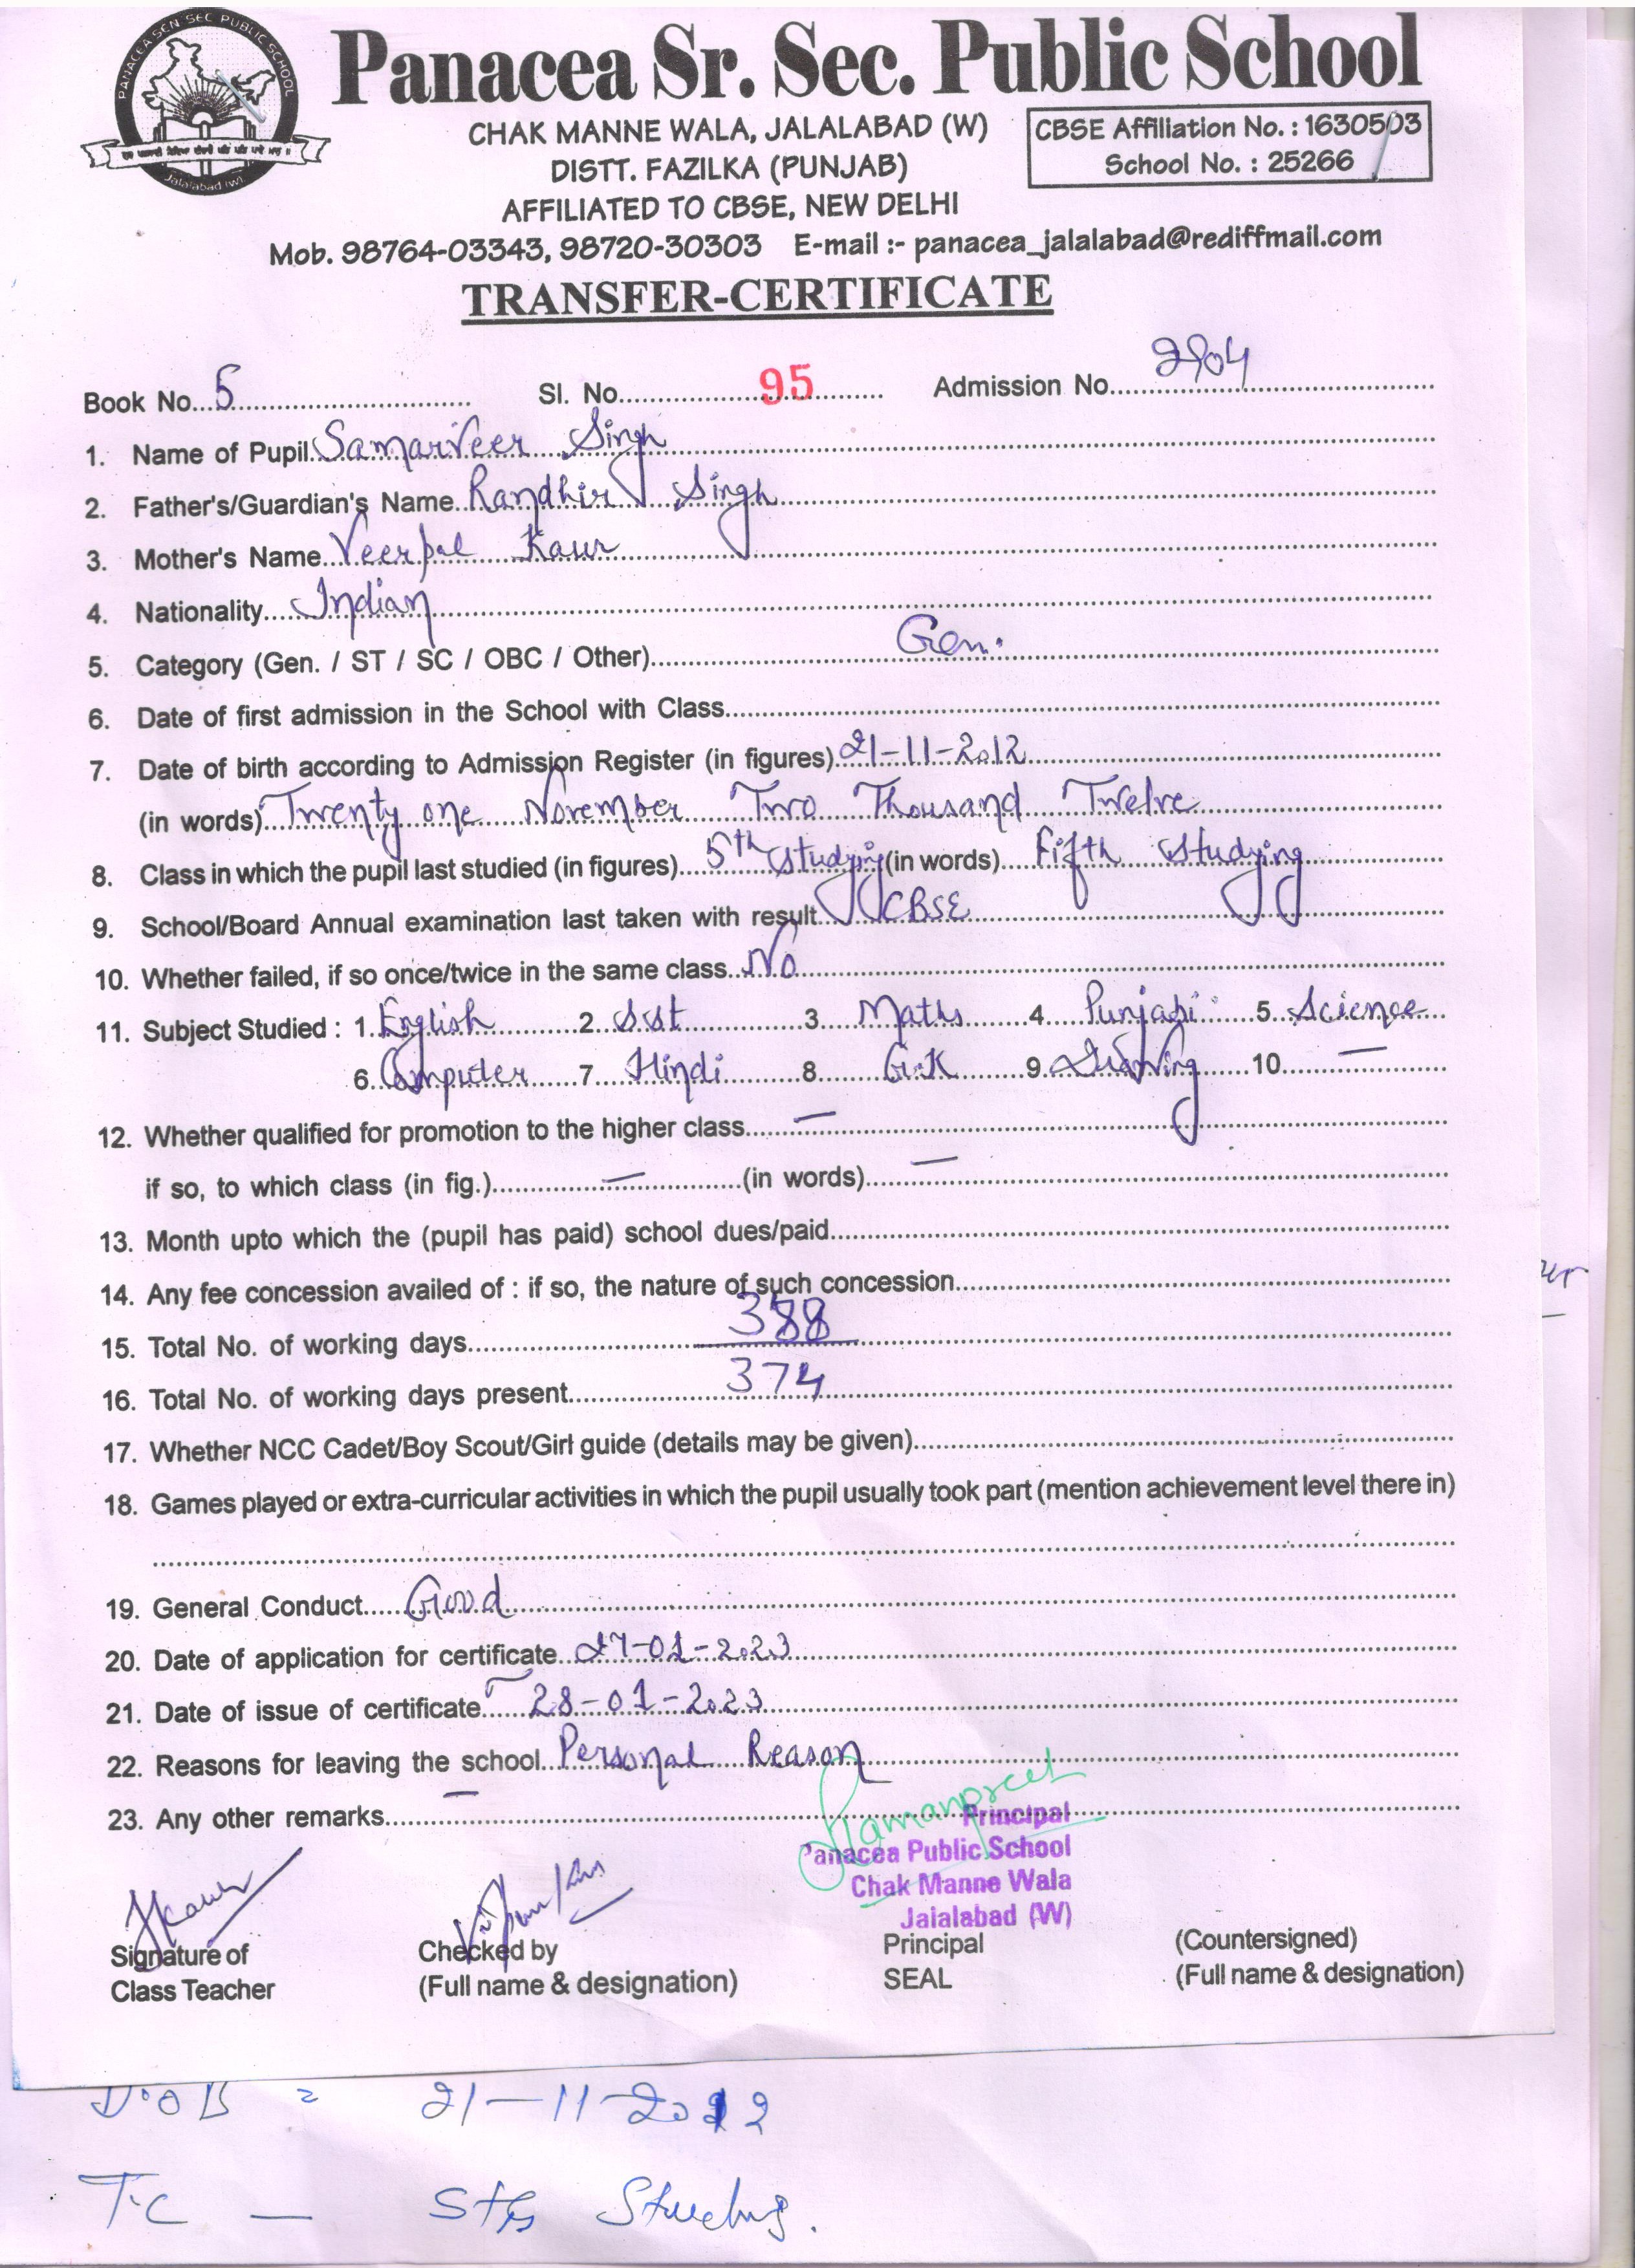 PANACEA SEN SEC PUBLIC SCHOOL
Jalalabad (w).
Panacea Sr. Sec. Public School
CHAK MANNE WALA, JALALABAD (W)
DISTT. FAZILKA (PUNJAB)
AFFILIATED TO CBSE, NEW DELHI
CBSE Affiliation No. : 1630503
School No. : 25266
Mob. 98764-03343, 98720-30303 E-mail :- panacea_jalalabad@rediffmail.com
TRANSFER-CERTIFICATE
Book No. 5 Sl. No. 95 Admission No. 2904
1. Name of Pupil Samarveer Singh
2. Father's/Guardian's Name Randhir Singh
3. Mother's Name Veerpal Kaur
4. Nationality Indian
5. Category (Gen. / ST / SC / OBC / Other) Gen.
6. Date of first admission in the School with Class
7. Date of birth according to Admission Register (in figures) 21-11-2012
(in words) Twenty one November Two Thousand Twelve
8. Class in which the pupil last studied (in figures) 5th studying (in words) Fifth studying
9. School/Board Annual examination last taken with result CBSE
10. Whether failed, if so once/twice in the same class No
11. Subject Studied : 1. English 2. S.st 3. Maths 4. Punjabi 5. Science
6. Computer 7. Hindi 8. G.K 9. Drawing 10. —
12. Whether qualified for promotion to the higher class —
if so, to which class (in fig.) — (in words) —
13. Month upto which the (pupil has paid) school dues/paid
14. Any fee concession availed of : if so, the nature of such concession
15. Total No. of working days 388
16. Total No. of working days present 374
17. Whether NCC Cadet/Boy Scout/Girl guide (details may be given)
18. Games played or extra-curricular activities in which the pupil usually took part (mention achievement level there in)
19. General Conduct Good
20. Date of application for certificate 27-01-2023
21. Date of issue of certificate 28-01-2023
22. Reasons for leaving the school Personal Reason
23. Any other remarks —
Ramanpreet
Principal
Panacea Public School
Chak Manne Wala
Jalalabad (W)
Signature of
Class Teacher
Checked by
(Full name & designation)
Principal
SEAL
(Countersigned)
(Full name & designation)
D.O.B = 21-11-2012
T.C — 5th Studying.